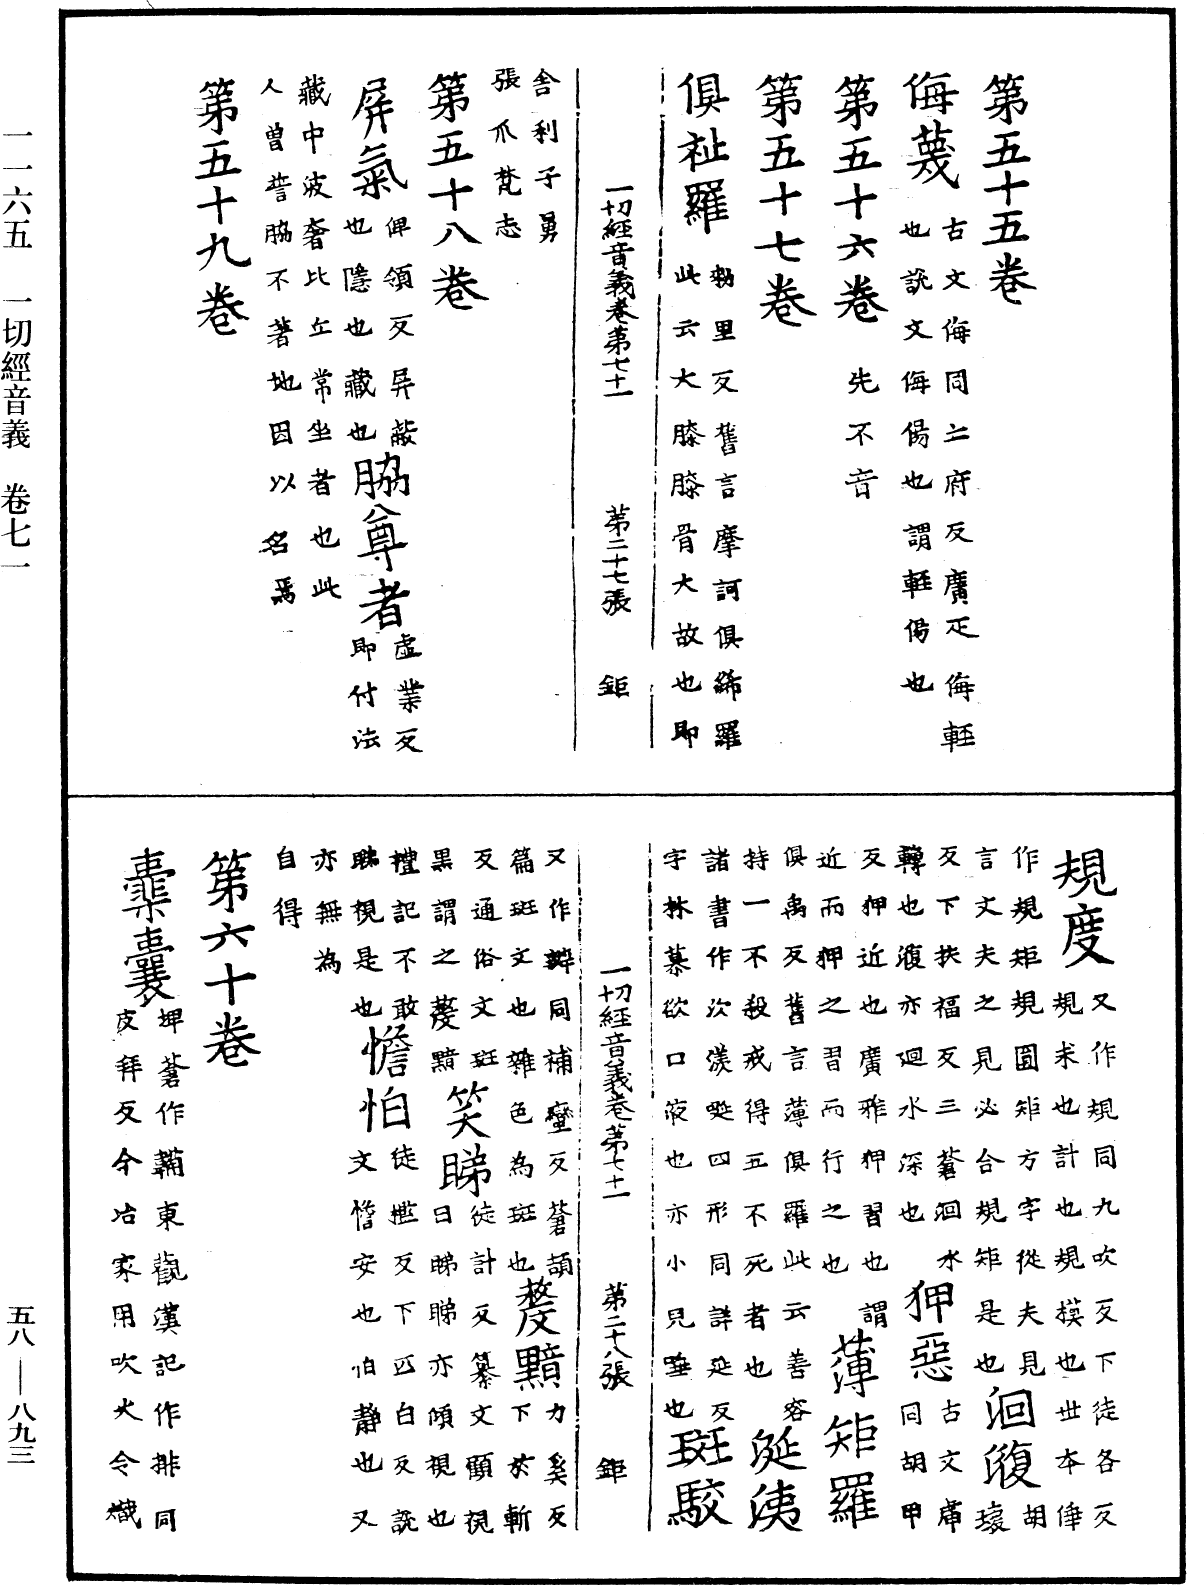 第五十五卷
侮蔑 古文侮同亡府反廣疋侮輕
也說文侮傷也謂輕傷也
第五十六卷 先不音
第五十七卷
俱祉羅 勑里反舊言摩訶俱絺羅
此云大膝膝骨大故也即
一切經音義卷第七十一 第二十七張 鉅
舍利子舅
張爪梵志
第五十八卷
屏氣 俾領反屏蔽
也隱也藏也
脇尊者 虛業反
即付法
藏中波奢比丘常坐者也此
人曾誓脇不著地因以名焉
第五十九卷
規度 又作規同九吹反下徒各反
規求也計也規模也世本倕
作規矩規圓矩方字從夫見
言文夫之見必合規矩是也
洄澓 胡瓌
反下扶福反三蒼洄水
轉也澓亦迴水深也
狎惡 古文㢙
同胡甲
反狎近也廣雅狎習也謂
近而狎之習而行之也
薄矩羅
俱禹反舊言薄俱羅此云善容
持一不殺戒得五不死者也
涎洟
諸書作次㳄唌四形同詳延反
字林慕欲口液也亦小兒唾也
斑駮
一切經音義卷第七十一 第二十八張 鉅
又作辬同補蠻反蒼頡
篇斑文也雜色為斑也
黳黯 力奚反
下於斬
反通俗文斑
黑謂之黳黯
笑睇 徒計反纂文顧視
曰睇睇亦傾視也
禮記不敢
睇視是也
憺怕 徒檻反下匹白反說
文憺安也怕靜也又
亦無為
自得
第六十卷
橐囊 埤蒼作韛東觀漢記作排同
皮拜反今冶家用吹火令熾
一一六五 一切經音義 卷七一
五八—八九三